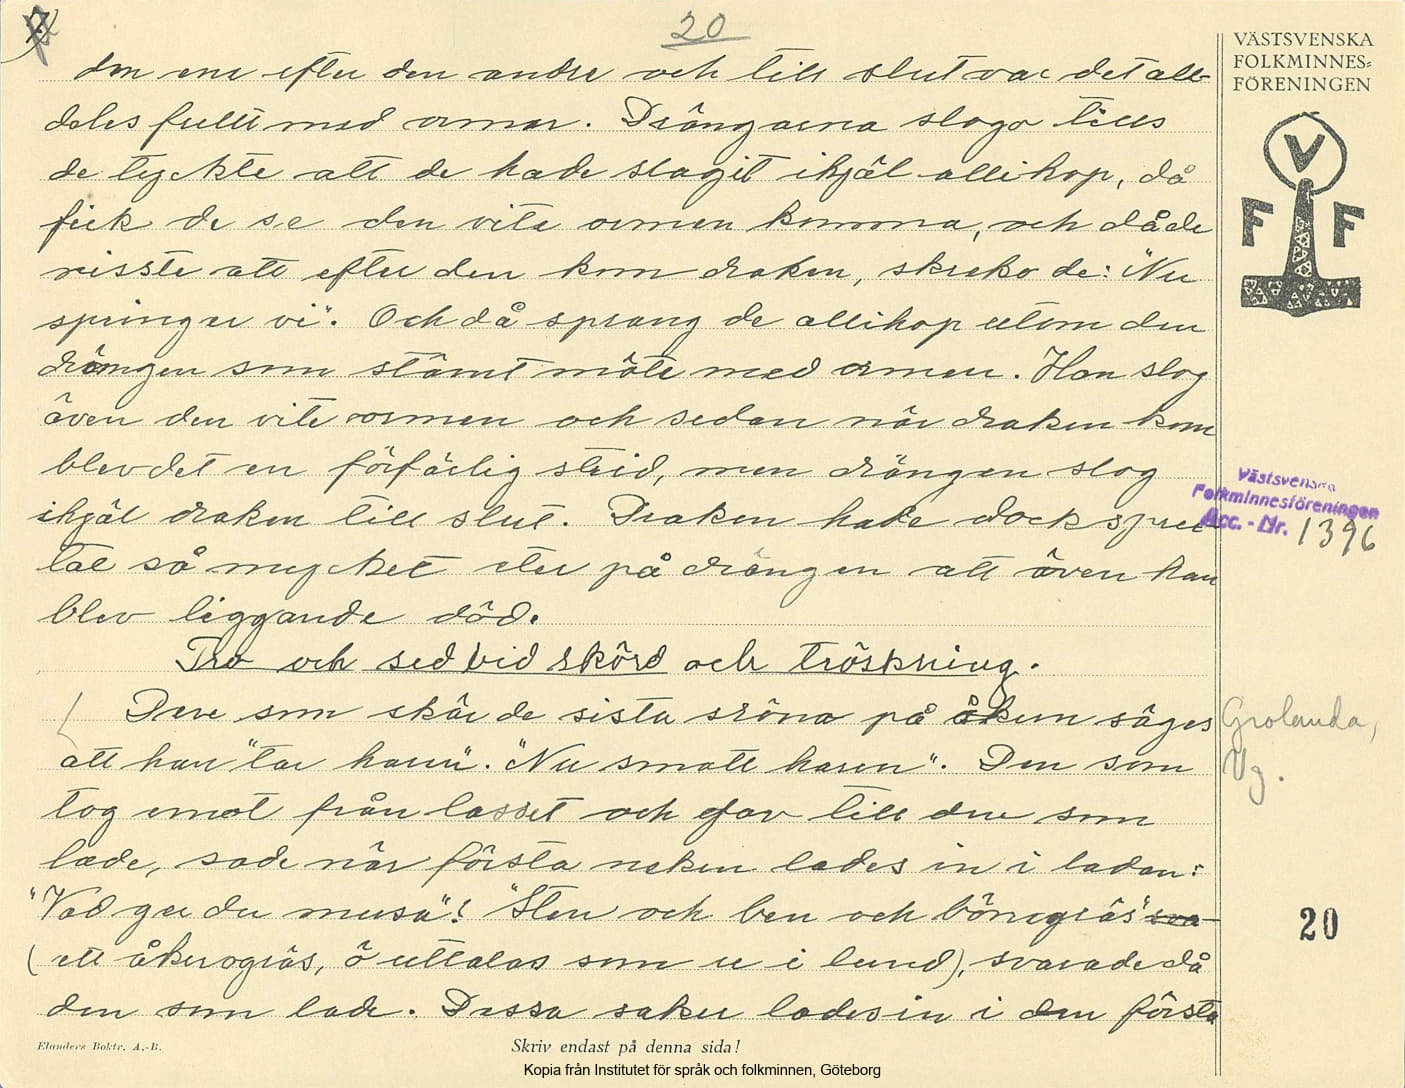 20
den ene efter den andre och till slut var det all-
deles fullt med ormar. Drängarna slogo tills
de tyckte att de hade slagit ihjäl allihop, då
fick de se den vita ormen komma, och då de
visste att efter den kom draken, skreko de: "Nu
springer vi". Och då sprang de allihop utom den
drängen som stämt möte med ormen. Han slog
även den vite ormen och sedan när draken kom
blev det en förfärlig strid, men drängen slog
ihjäl draken till slut. Draken hade dock spru-
tat så mycket eter på drängen att även han
blev liggande död.
Tro och sed vid skörd och tröskning.
Den som skär de sista stråna på åkern säges
att han "tar haren". "Nu smatt haren". Den som
tog emot från lasset och gav till den som
lade, sade när första neken lades in i ladan:
"Vad ger du musa"! "Sten och ben och bönegräs"
(ett åkerogräs, ö uttalas som u i lund), svarade då
den som lade. Dessa saker lades in i den första
Skriv endast på denna sida!
Elanders Boktr. A.-B.
Kopia från Institutet för språk och folkminnen, Göteborg
VÄSTSVENSKA
FOLKMINNES-
FÖRENINGEN
V
F F
Västsvenska
Folkminnesföreningen
Acc. - Nr. 1396
Grolanda,
Vg.
20